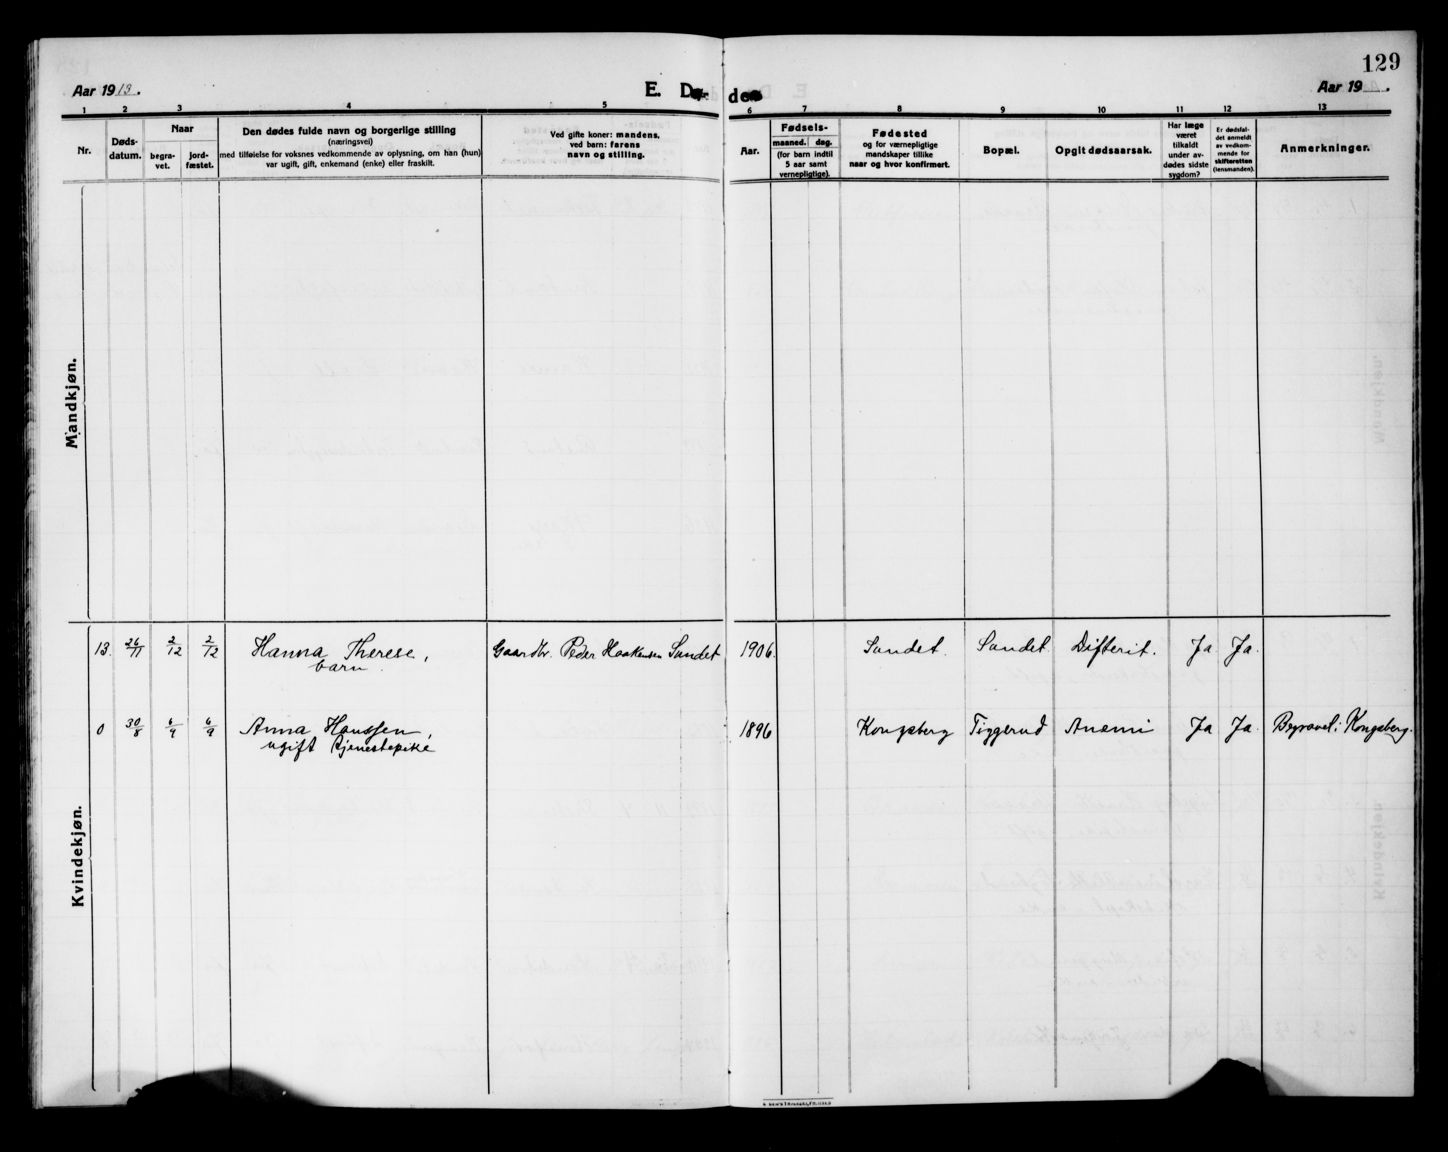 129
Aar 1913.
E. Døde
Aar 19 .
1 2 3 4 5 6 7 8 9 10 11 12 13
Nr.
Døds-
datum.
Naar
begra-
vet.
jord-
fæstet.
Den dødes fulde navn og borgerlige stilling
(næringsvei)
med tilføielse for voksnes vedkommende av oplysning, om han (hun)
var ugift, gift, enkemand (enke) eller fraskilt.
Ved gifte koner: mandens,
ved barn: farens
navn og stilling.
Aar.
Fødsels-
maaned. dag.
(for barn indtil
5 aar samt
vernepligtige).
Fødested
og for værnepligtige
mandskaper tillike
naar og hvor konfirmert.
Bopæl.
Opgit dødsaarsak.
Har læge
været
tilkaldt
under av-
dødes sidste
sygdom?
Er dødsfal-
det anmeldt
av vedkom-
mende for
skifteretten
(lensmanden).
Anmerkninger.
Mandkjøn.
Kvindekjøn.
13 26/11 2/12 2/12 Hanna Therese, Gaardbr. Peder Haakensen Sandet 1906. Sandet. Sandet. Difterit. Ja Ja.
barn.
0 30/8 6/9 6/9 Anna Hanssen, 1896 Kongsberg Tiggerud Anæmi Ja Ja. Begravet i Kongsberg.
ugift tjenestepike